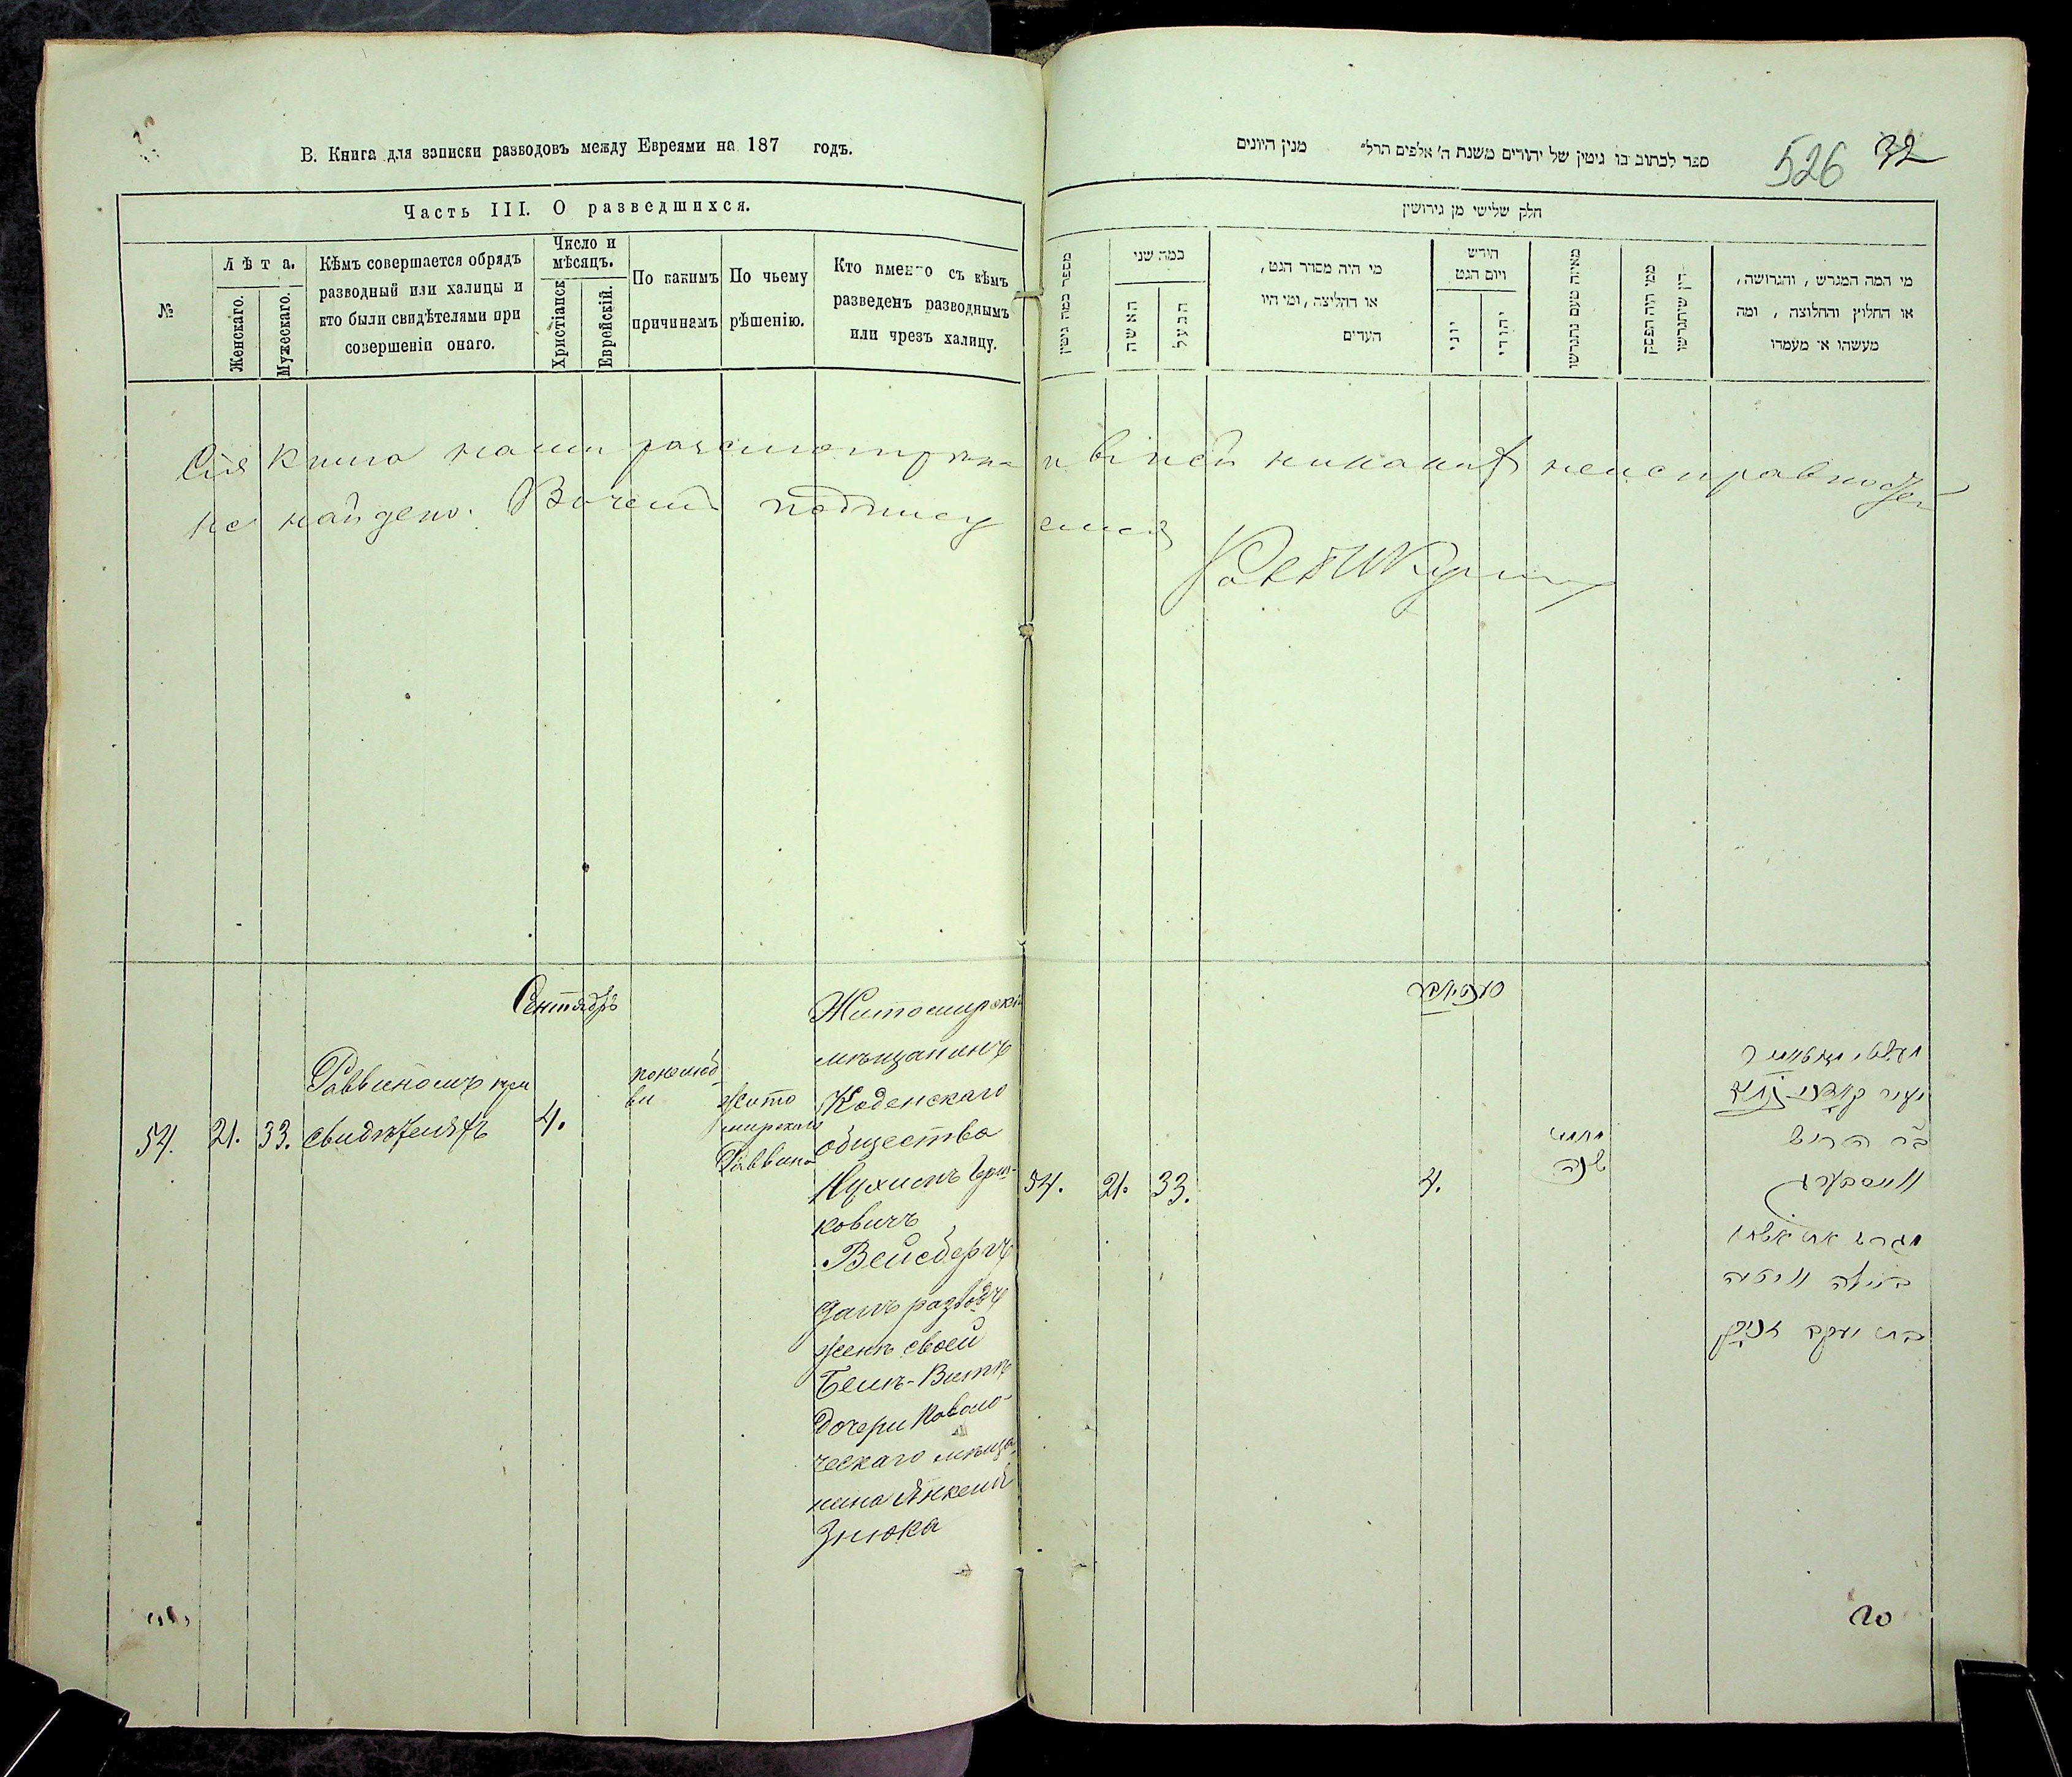 В. Книга для записки разводовъ между Евреями на 187 годъ.
Часть III. О разведшихся.
№
Лѣта.
Женскаго.
Мужескаго.
Кѣмъ совершается обрядъ
разводный или халицы и
кто были свидѣтелями при
совершеніи онаго.
Число и
мѣсяцъ.
Христіанск
Еврейскій.
По какимъ
причинамъ
По чьему
рѣшенію.
Кто именно съ кѣмъ
разведенъ разводнымъ
или чрезъ халицу.
ספר לכתוב בו גיטין של יהודים משנת ה' אלפים תרל" מנין היונים
526 32
חלק שלישי מן גירושין
מספר כמה גיטין
כמה שני
האשה
הבעל
מי היה מסדר הגט,
או החליצה, ומי היו
העדים
חדש
ויום הגט
יוני
יהודי
מאיזה טעם נתגרשו
ממי היה הפסק
דין שיתגרשו
מי המה המגרש, והגרושה,
או החלוץ והחלוצה, ומה
מעשהו או מעמדו
Сія Книга нами разсмотрена и въ ней никакихъ неисправностей
не найдено. В чемъ подписуемся
Сентябрь
54. 21. 33.
Раввиномъ при
свидѣтеляхъ
4.
нелюб
ви
Жито
мирскаго
Раввина
Житомирскій
мѣщанинъ
Коденскаго
общества
Нухимъ Герш-
ковичъ
Вейсбергъ
далъ разводъ
женѣ своей
Бейлѣ-Витѣ
дочери Паволо-
ческаго мѣща-
нина Янкеля
Знюка
54. 21. 33.
4.
שנה
בר הרש
ווייסבערג
גרש את אשתו
ביילה וויטה
בת יעקב זניק